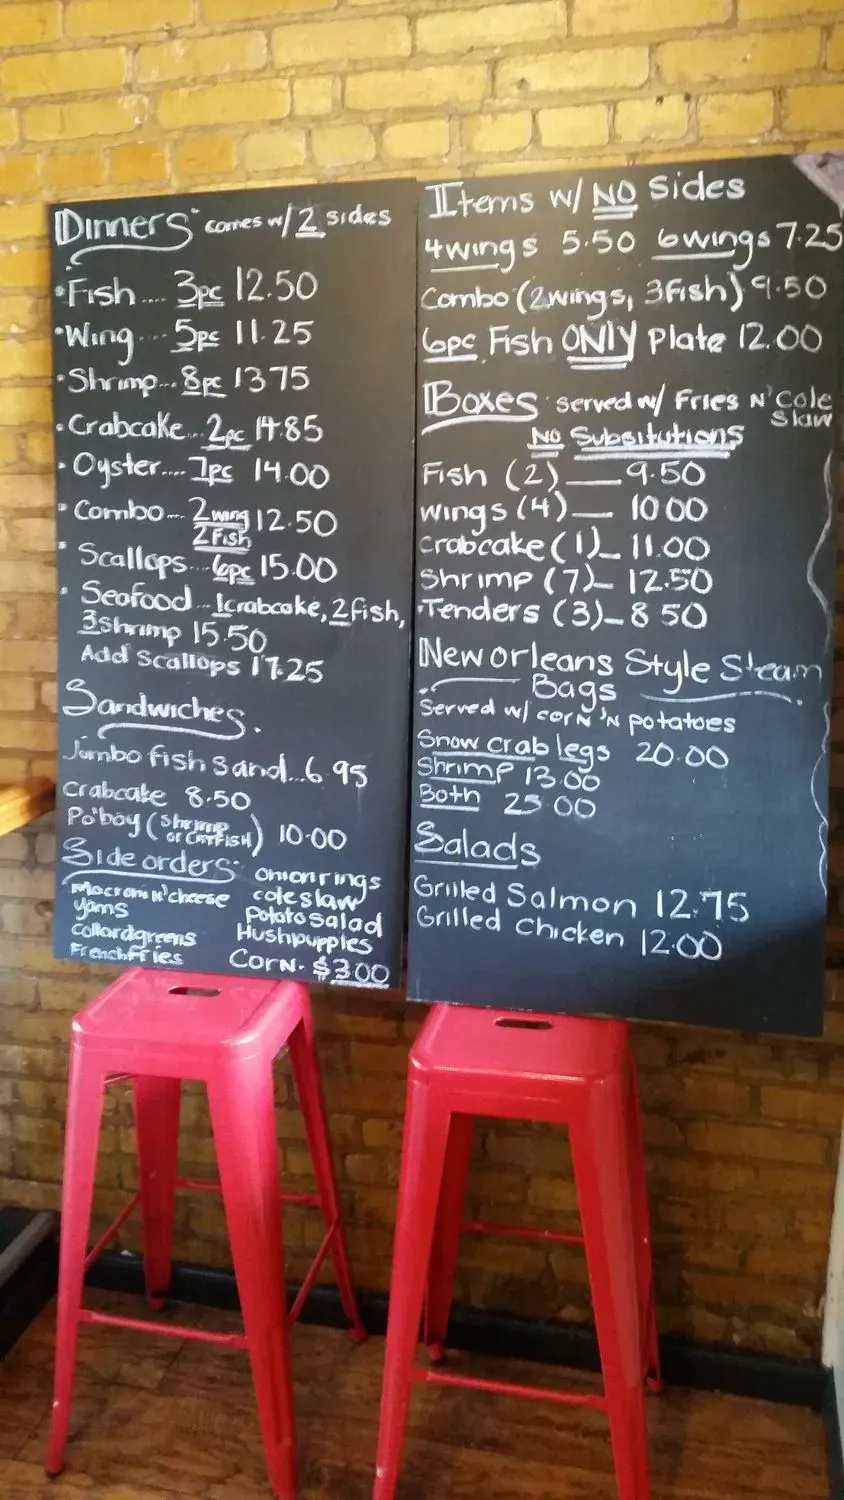 Dinners comes w/ 2 sides
• Fish.... 3pc 12.50
• Wing.... 5pc 11.25
• Shrimp... 8pc 1375
• Crabcake... 2pc 14.85
• Oyster.... 7pc 14.00
• Combo... 2 wing 12.50
2 Fish
• Scallops... 6pc 15.00
• Seafood... 1crabcake, 2fish,
3shrimp 15.50
Add Scallops 17.25
Sandwiches.
Jumbo fish sand...6.95
Crabcake 8.50
Po'boy (shrimp or CATFISH) 10.00
Side orders:
Macroni N'cheese
yams
collardgreens
Frenchfries
onion rings
coleslaw
potatosalad
Hushpupples
Corn. $3.00
Items w/ NO Sides
4wings 5.50 6wings 7.25
Combo (2wings, 3fish) 9.50
6pc Fish ONLY Plate 12.00
Boxes served w/ Fries N' Cole
Slaw
NO Subsitutions
Fish (2)__9.50
wings (4)_ 10 00
crabcake (1)_ 11.00
Shrimp (7)_ 12.50
Tenders (3)_8 50
New orleans Style Steam
Bags
Served w/ corn 'N potatoes
Snow crab legs 20.00
Shrimp 13.00
Both 25 00
Salads
Grilled Salmon 12.75
Grilled Chicken 12.00